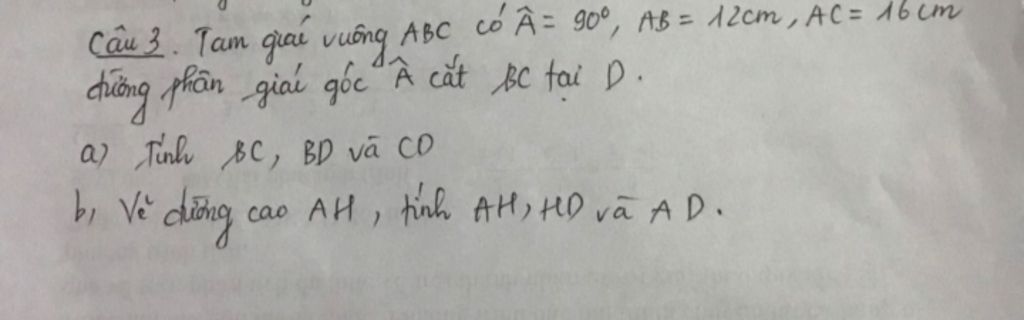 Câu 3. Tam giai vuông ABC có Â = 90º, AB = 12cm, AC = 16cm
đường phân giai góc Â cắt BC tại D.
a) Tính BC, BD và CD
b, Vẽ đường cao AH, tính AH, HD và AD.